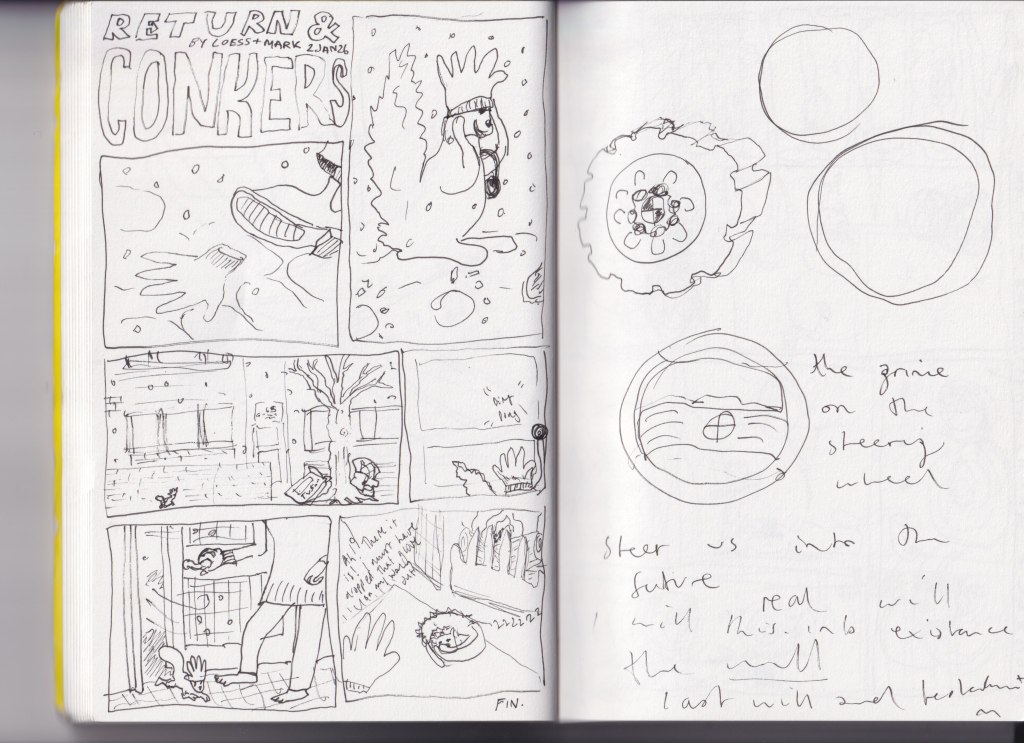 RETURN &
BY LOESS + MARK 2 JAN 26
CONKERS
DING
DONG
Ah! There it
is! I must have
dropped that glove
on my way
out!
ZZZZZZZ
FIN.
the grime
on the
steering
wheel
steer us into the
future
real will
I will this into existance
the will
last will and testament